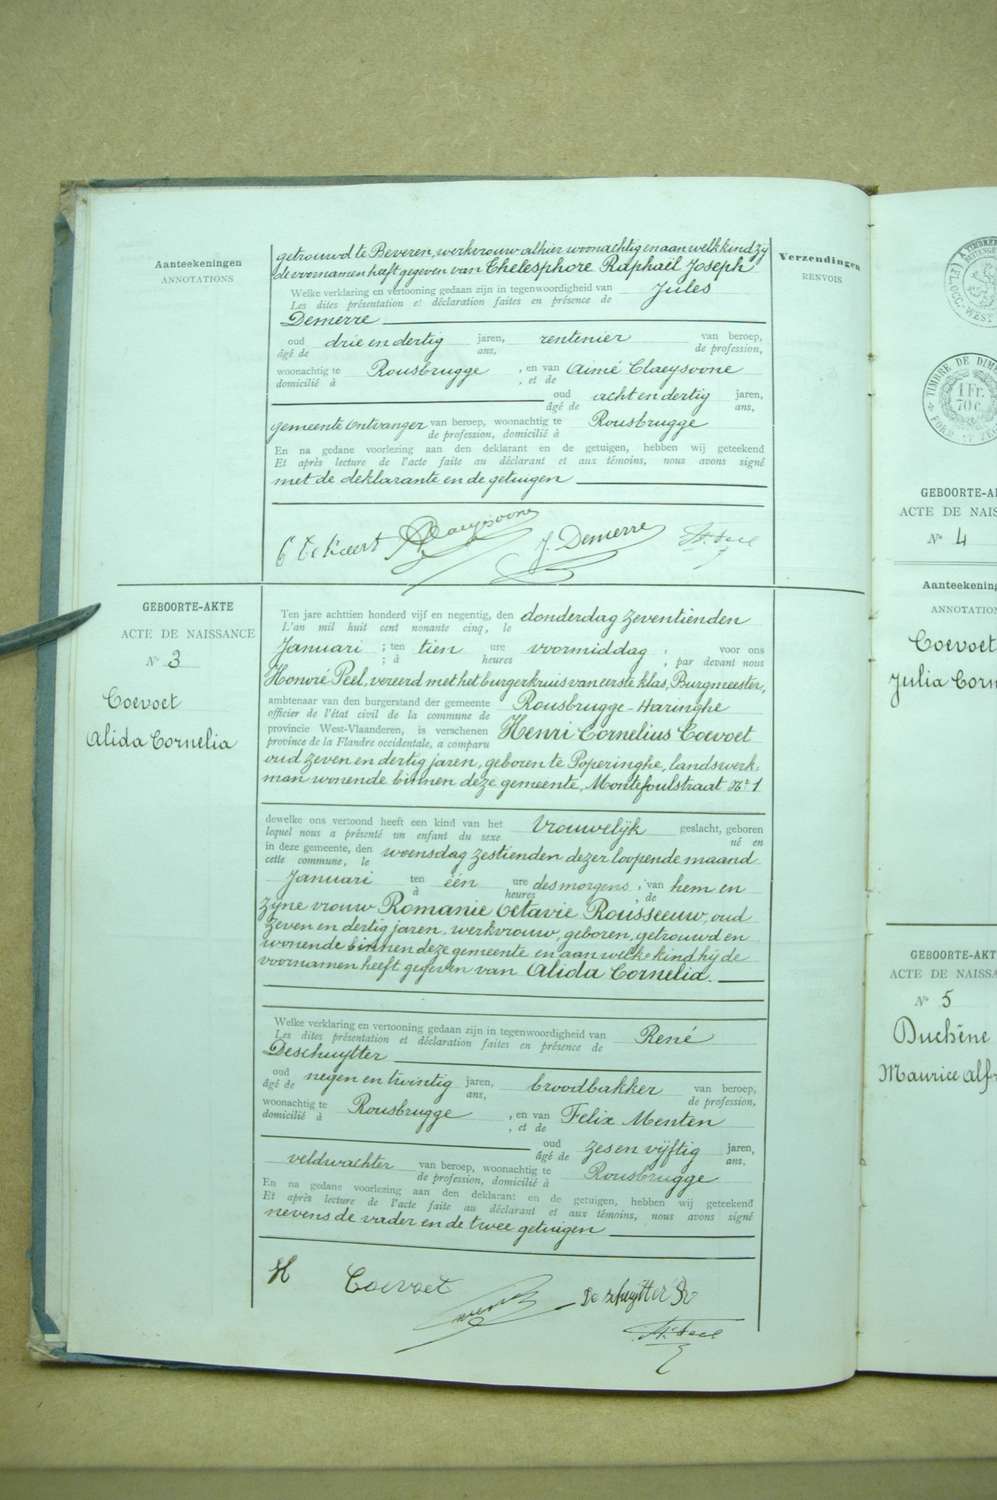 Aanteekeningen
ANNOTATIONS
Verzendingen
RENVOIS
getrouwd te Beveren, werkvrouw alhier woonachtig en aan welk kind zy
de voornamen heeft gegeven van Thelesphore Raphaël Joseph
Welke verklaring en vertooning gedaan zijn in tegenwoordigheid van Jules
Les dites présentation et déclaration faites en présence de
Demerre
oud drie en dertig jaren, rentenier van beroep,
âgé de ans, de profession,
woonachtig te Rousbrugge , en van Aimé Claeysoone
domicilié à , et de
oud acht en dertig jaren,
âgé de ans,
gemeente ontvanger van beroep, woonachtig te Rousbrugge
de profession, domicilié à
En na gedane voorlezing aan den deklarant en de getuigen, hebben wij geteekend
Et après lecture de l'acte faite au déclarant et aux témoins, nous avons signé
met de deklarante en de getuigen
Claeysoone J. Demerre
GEBOORTE-AKTE
ACTE DE NAISSANCE
N° 3
Coevoet
Alida Cornelia
Ten jare achttien honderd vijf en negentig, den donderdag zeventienden
L'an mil huit cent nonante cinq, le
Januari ; ten tien ure voormiddag ; voor ons
; à heures ; par devant nous
Honoré Peel, vereerd met het burgerkruis van eerste klas, Burgmeester,
ambtenaar van den burgerstand der gemeente Rousbrugge-Haringhe
officier de l'état civil de la commune de
provincie West-Vlaanderen, is verschenen Henri Cornelius Coevoet
province de la Flandre occidentale, a comparu
oud zeven en dertig jaren, geboren te Poperinghe, landswerk-
man wonende binnen deze gemeente, Montefoulstraat N° 1
dewelke ons vertoond heeft een kind van het vrouwelijk geslacht, geboren
lequel nous a présenté un enfant du sexe né en
in deze gemeente, den woensdag zestienden dezer loopende maand
cette commune, le
Januari ten één ure des morgens, van hem en
à heures de
zyne vrouw Romanie Octavie Rousseeuw, oud
zeven en dertig jaren, werkvrouw, geboren, getrouwd en
wonende binnen deze gemeente en aan welke kind hij de
voornamen heeft gegeven van Alida Cornelia.
Welke verklaring en vertooning gedaan zijn in tegenwoordigheid van René
Les dites présentation et déclaration faites en présence de
Deschuytter
oud negen en twintig jaren, broodbakker van beroep,
âgé de ans, de profession,
woonachtig te Rousbrugge , en van Felix Menten
domicilié à , et de
oud zes en vijftig jaren,
âgé de ans,
veldwachter van beroep, woonachtig te Rousbrugge
de profession, domicilié à
En na gedane voorlezing aan den deklarant en de getuigen, hebben wij geteekend
Et après lecture de l'acte faite au déclarant et aux témoins, nous avons signé
nevens de vader en de twee getuigen
H Coevoet De schuytter
TIMBRE DE DIME
1 Fr.
70 c.
GEBOORTE-A
ACTE DE NAIS
N° 4
Aanteekenin
ANNOTATIO
Coevoet
Julia Corn
GEBOORTE-AKT
ACTE DE NAISSA
N° 5
Duchêne
Maurice Alf